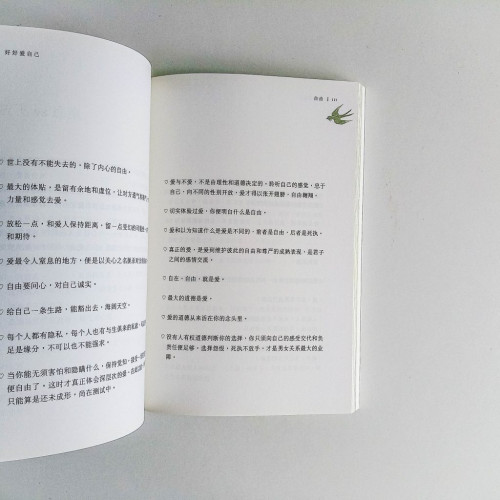 好好爱自己
世上没有不能失去的，除了内心的自由。
最大的体贴，是留有余地和虚位，让对方透气
力量和感觉去爱。
放松一点，和爱人保持距离，留一点
和期待。
爱最令人窒息的地方，便是以关心之名
自由要问心，对自己诚实。
给自己一条生路，能豁出去，海阔天空。
每个人都有隐私，每个人也有与生俱来的
足是缘分，不可以也不能强求。
当你能无须害怕和隐瞒什么，保持觉知，
便自由了。这时才真正体会深层次的爱。
只能算是还未成形，尚在测试中。
自由 | 111
爱与不爱，不是由理性和道德决定的。聆听自己的感觉，忠于
自己，向不同的性别开放，爱才得以张开翅膀，自由翱翔。
切实体验过爱，你便明白什么是自由。
爱和以为知道什么是爱是不同的，前者是自由，后者是死执。
真正的爱，是爱到维护彼此的自由和尊严的成熟表现，是君子
之间的感情交流。
自在，自由，就是爱。
最大的道德是爱。
爱的道德从来活在你的念头里。
没有人有权道德判断你的选择，你只须向自己的感受交代和负
责任便足够。选择怨恨，死执不放手，才是男女关系最大的业
障。